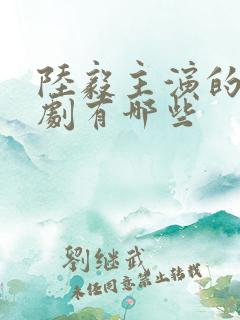 陸毅主演的
劇有哪些
劉继武
未经同意禁止转载